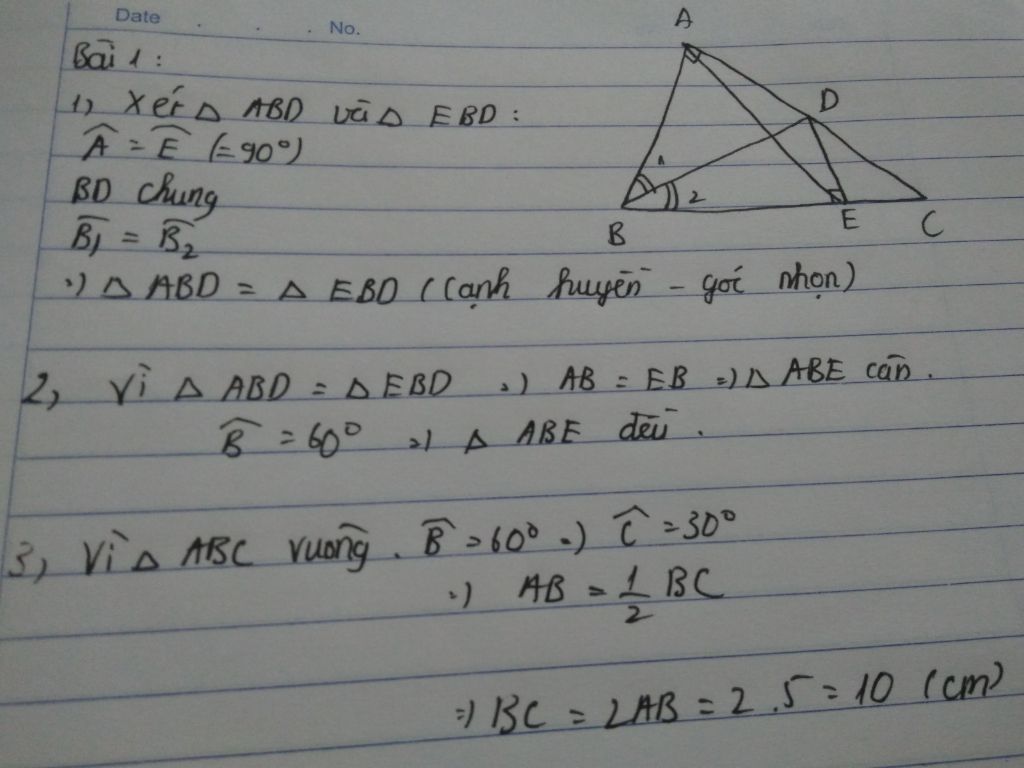 Date . . . No.
Bài 1 :
1, Xét △ ABD và △ EBD :
Â = Ê (= 90°)
BD chung
B̂₁ = B̂₂
=) △ ABD = △ EBD (Cạnh huyền - góc nhọn)
2, Vì △ ABD = △ EBD =) AB = EB =) △ ABE cân .
B̂ = 60° =) △ ABE đều .
3, Vì △ ABC vuông . B̂ = 60° =) Ĉ = 30°
=) AB = 1/2 BC
=) BC = 2AB = 2 . 5 = 10 (cm)
A
D
1
2
B
E
C